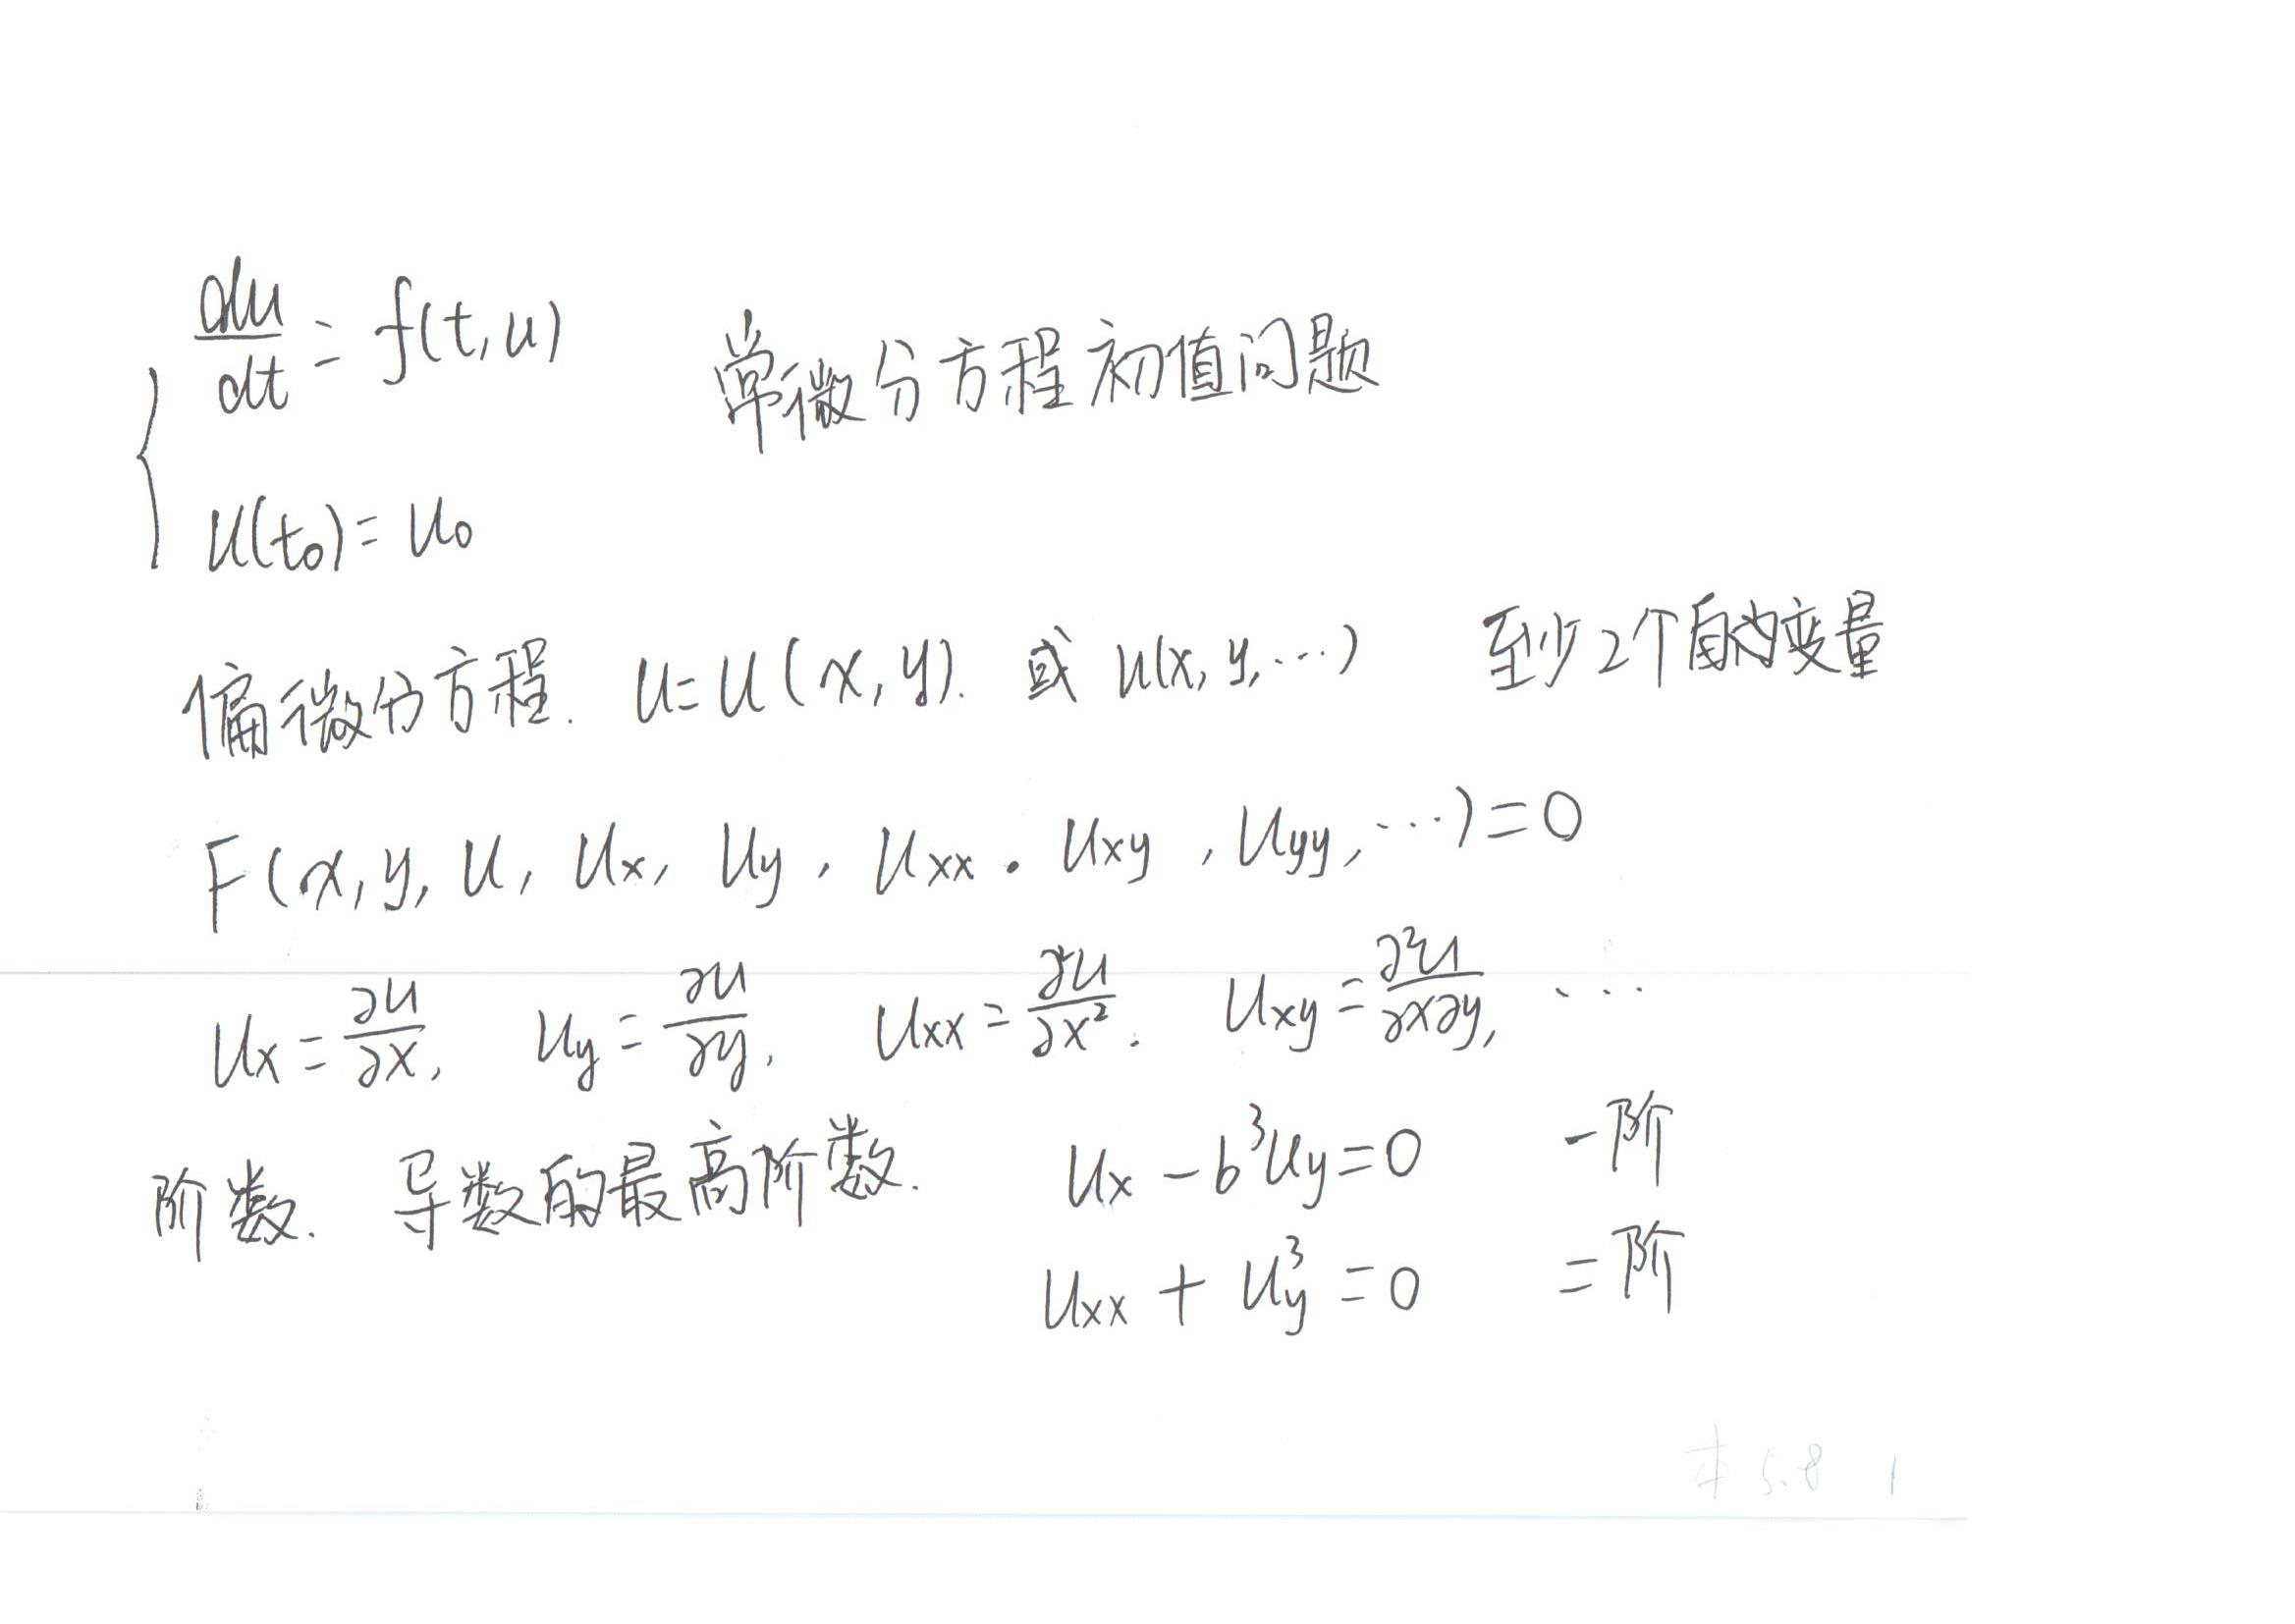 du/dt = f(t,u) 常微分方程初值问题
u(t₀) = u₀
偏微分方程. u=u(x,y). 或 u(x,y,…) 至少2个自变量
F(x,y,u,uₓ,u_y,uₓₓ.uₓ_y,u_yy,…)=0
uₓ=∂u/∂x, u_y=∂u/∂y, uₓₓ=∂²u/∂x². uₓ_y=∂²u/∂x∂y, …
阶数. 导数的最高阶数. uₓ-b³u_y=0 一阶
uₓₓ+u_y³=0 二阶
本 5.8 1